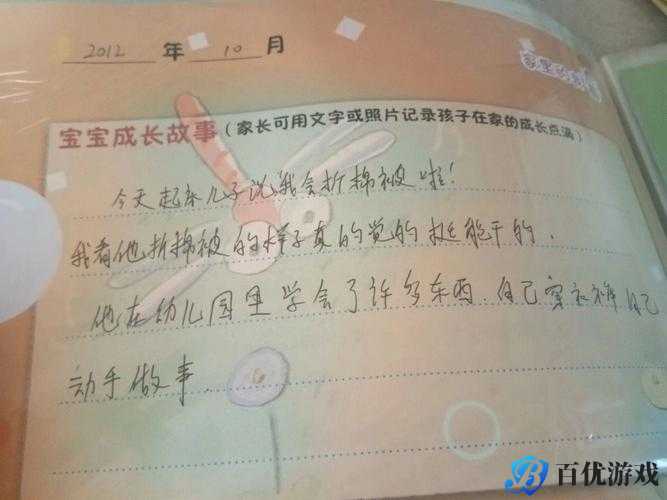 2012 年 10 月
家里的
宝宝成长故事（家长可用文字或照片记录孩子在家的成长点滴）
今天起来儿子说我会折棉被啦！
我看他折棉被的样子真的觉的挺能干的.
他在幼儿园里学会了许多东西.自己穿衣裤自己
动手做事.
百优游戏